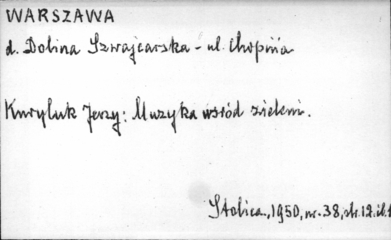 WARSZAWA
d. Dolina Szwajcarska - ul. Chopina
Kuryluk Jerzy: Muzyka wśród zieleni.
Stolica, 1950, nr. 38, str. 12. il. 1